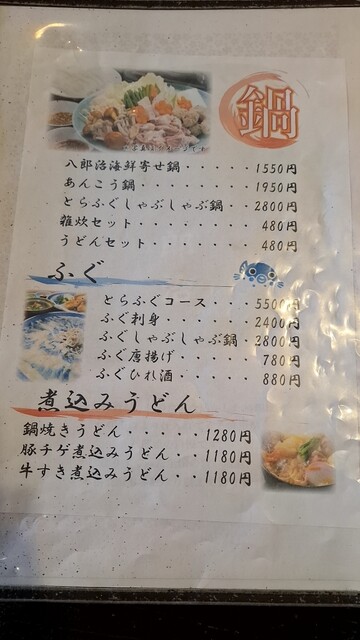 鍋
八郎活海鮮寄せ鍋・・・・・・1550円
あんこう鍋・・・・・・・・1950円
とらふぐしゃぶしゃぶ鍋・・2800円
雑炊セット・・・・・・・・480円
うどんセット・・・・・・・480円
ふぐ
とらふぐコース・・・5500円
ふぐ刺身・・・・・・2400円
ふぐしゃぶしゃぶ鍋・2800円
ふぐ唐揚げ・・・・・780円
ふぐひれ酒・・・・・880円
煮込みうどん
鍋焼きうどん・・・・・1280円
豚チゲ煮込みうどん・・1180円
牛すき煮込みうどん・・1180円